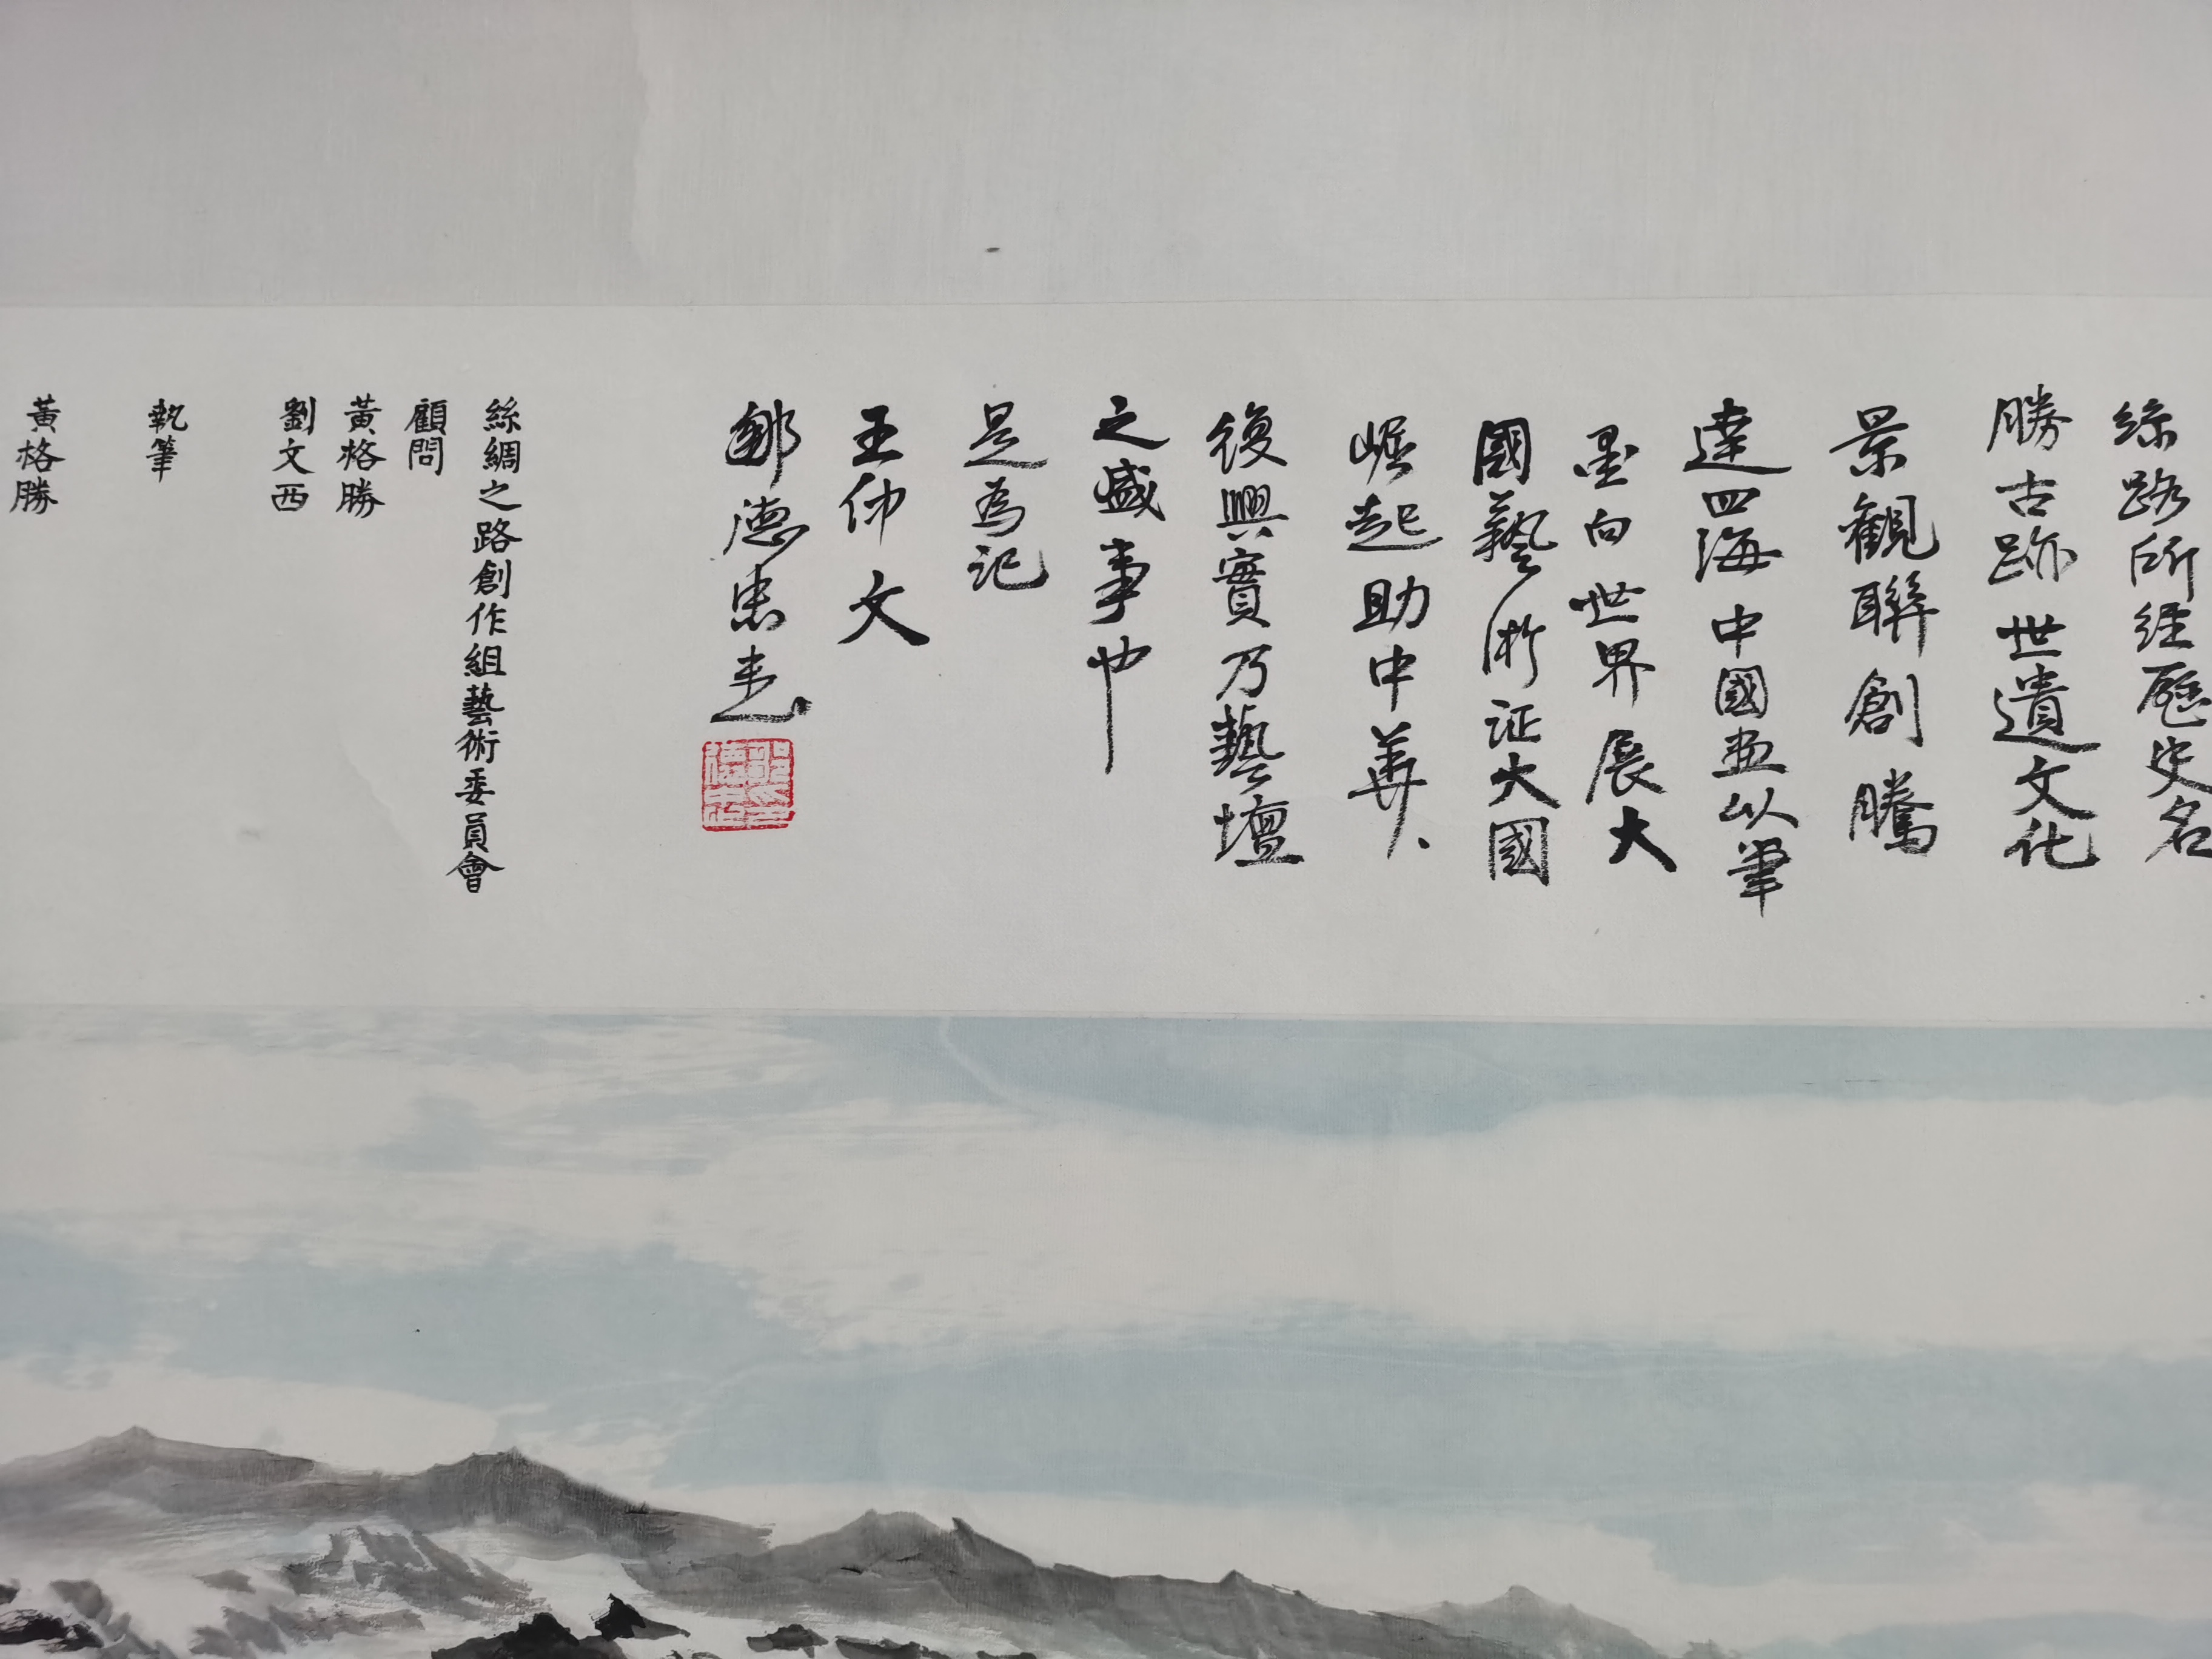 絲路所經歷史名
勝古跡世遺文化
景觀聯創騰
達四海中國畫以筆
墨向世界展大
國藝術证大國
崛起助中華
復興實乃藝壇
之盛事也
是為記
王仲文
鄒德忠書
絲綢之路創作組藝術委員會
顧問
黃格勝
劉文西
執筆
黃格勝